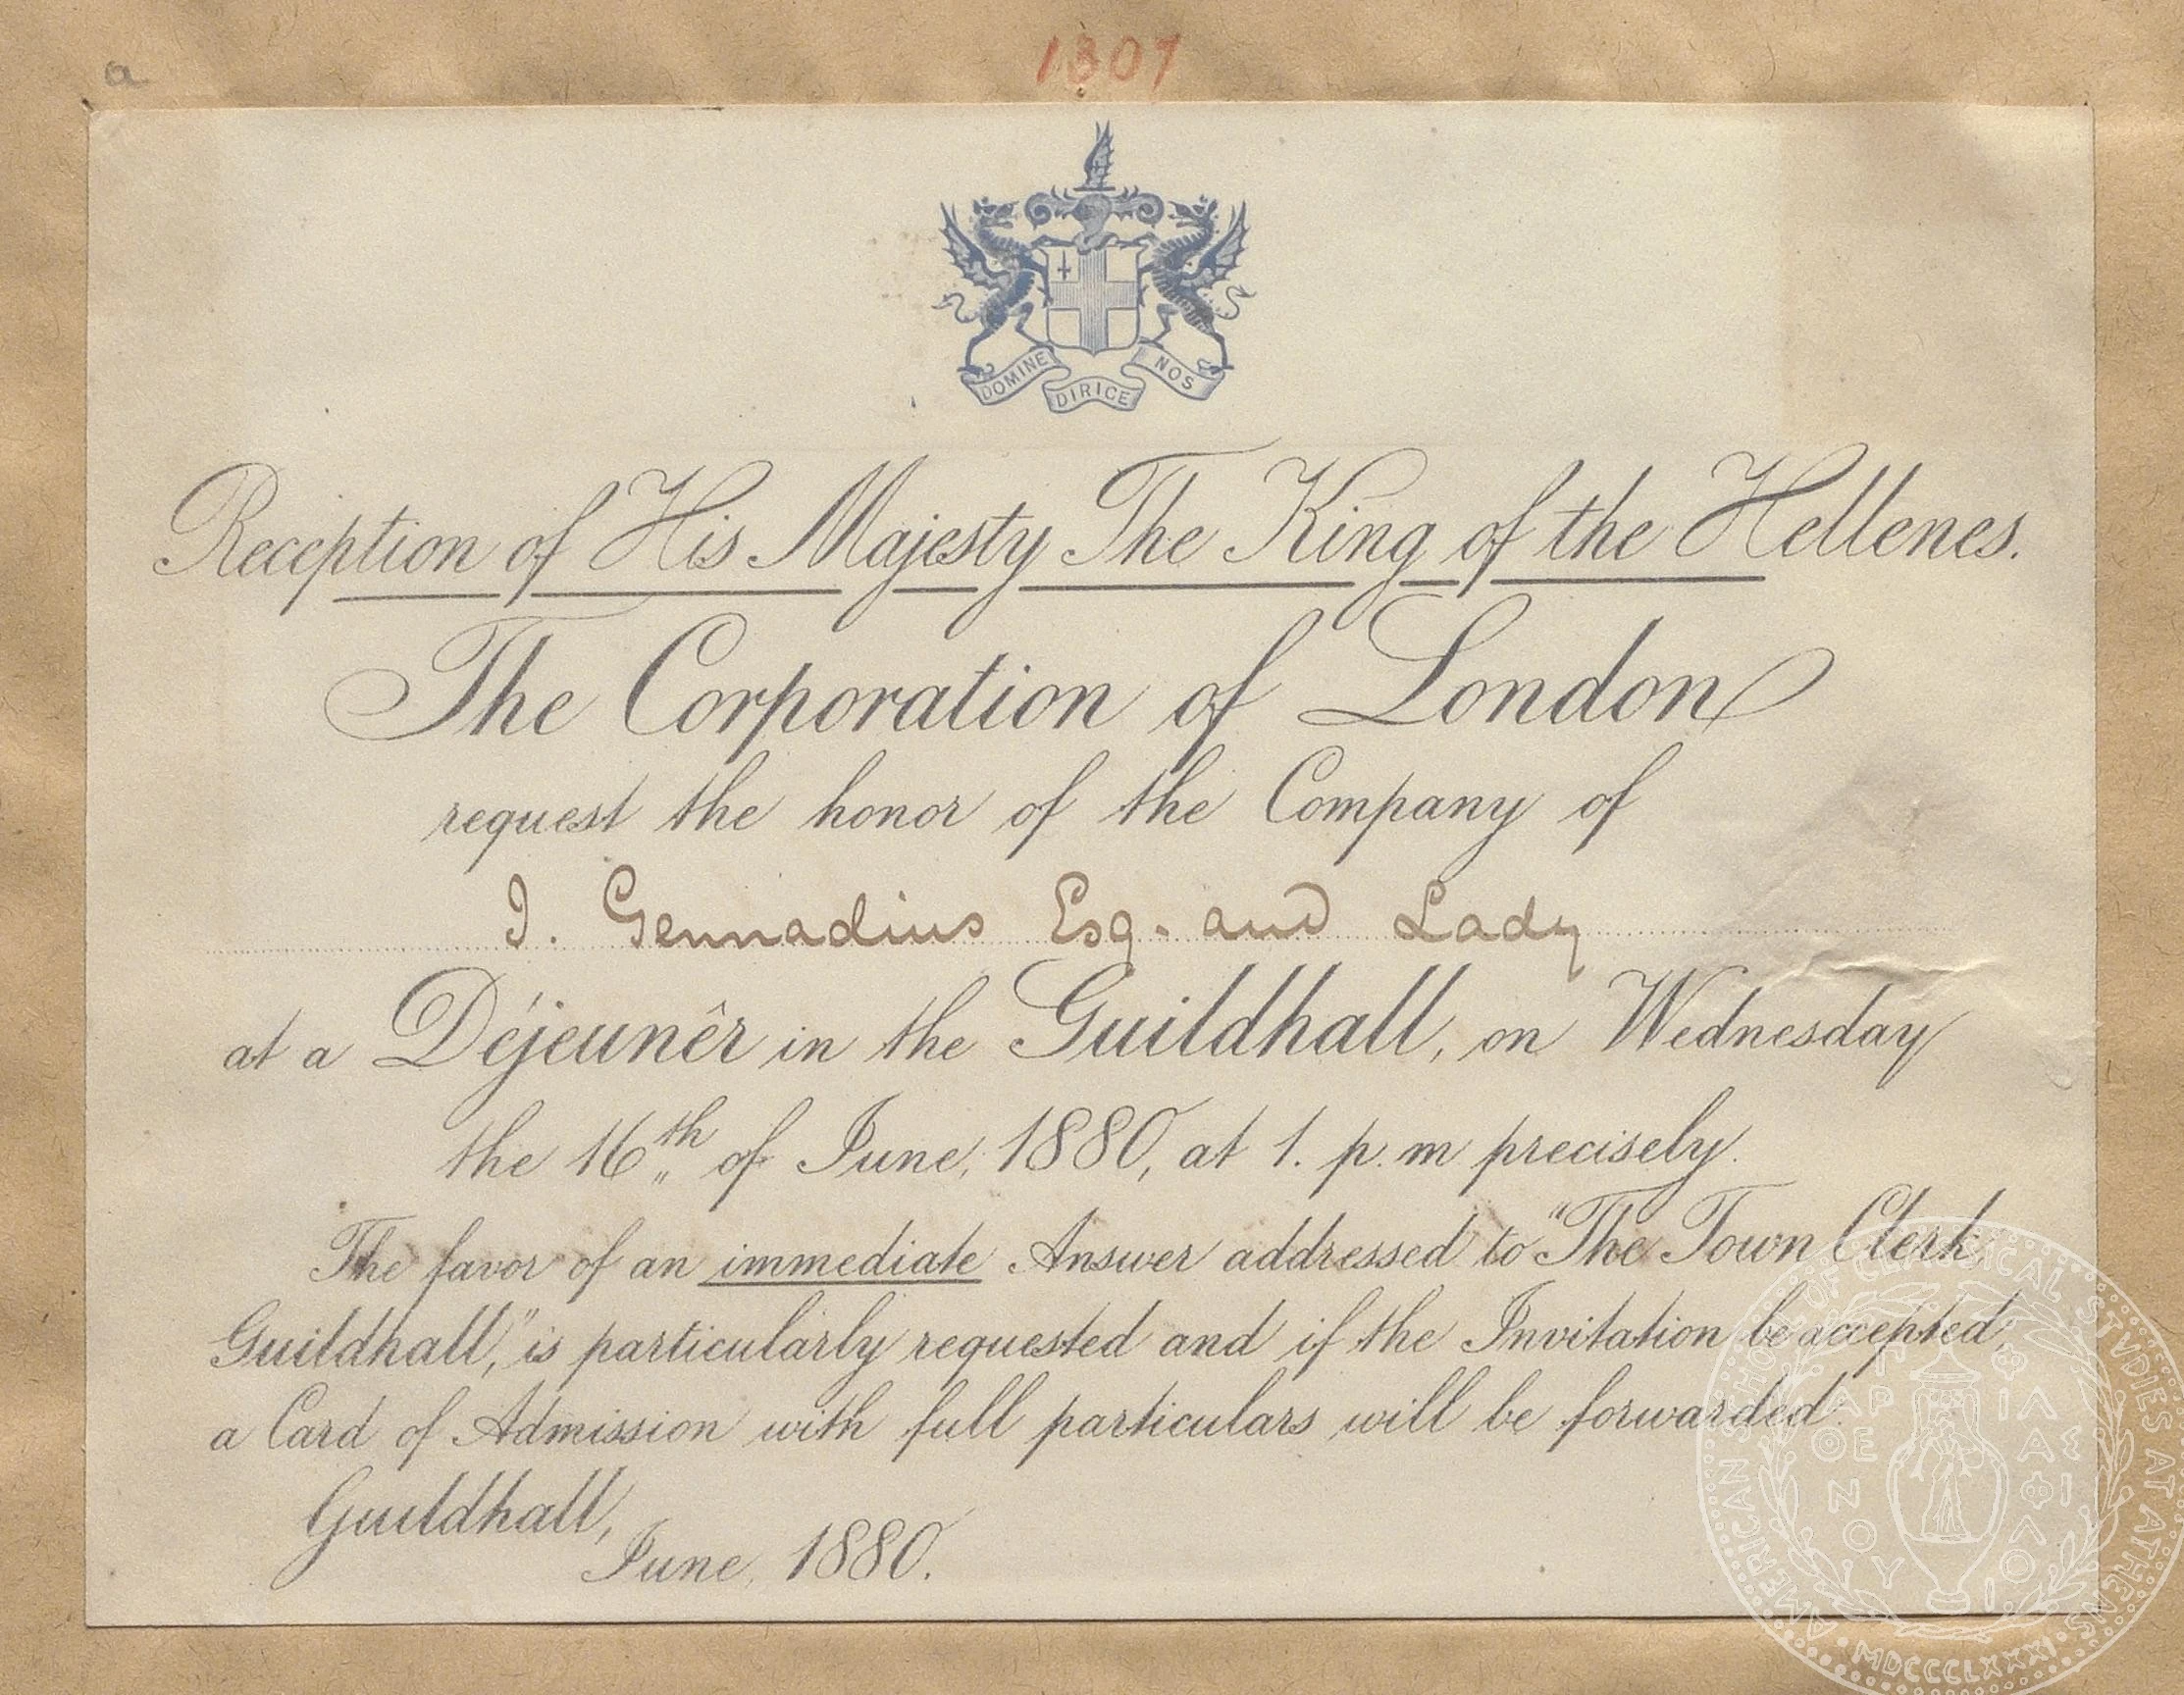 a
1307
DOMINE DIRIGE NOS
Reception of His Majesty The King of the Hellenes.
The Corporation of London
request the honor of the Company of
J. Gennadius Esq. and Lady
at a Déjeunêr in the Guildhall, on Wednesday
the 16th of June, 1880, at 1. p.m precisely.
The favor of an immediate Answer addressed to "The Town Clerk,
Guildhall," is particularly requested and if the Invitation be accepted,
a Card of Admission with full particulars will be forwarded.
Guildhall,
June, 1880.
AMERICAN SCHOOL OF CLASSICAL STVDIES AT ATHENS
MDCCCLXXXI
ΠΑΡΘΕΝΟΥ ΦΙΛΑΣ ΦΙΛΟΙ